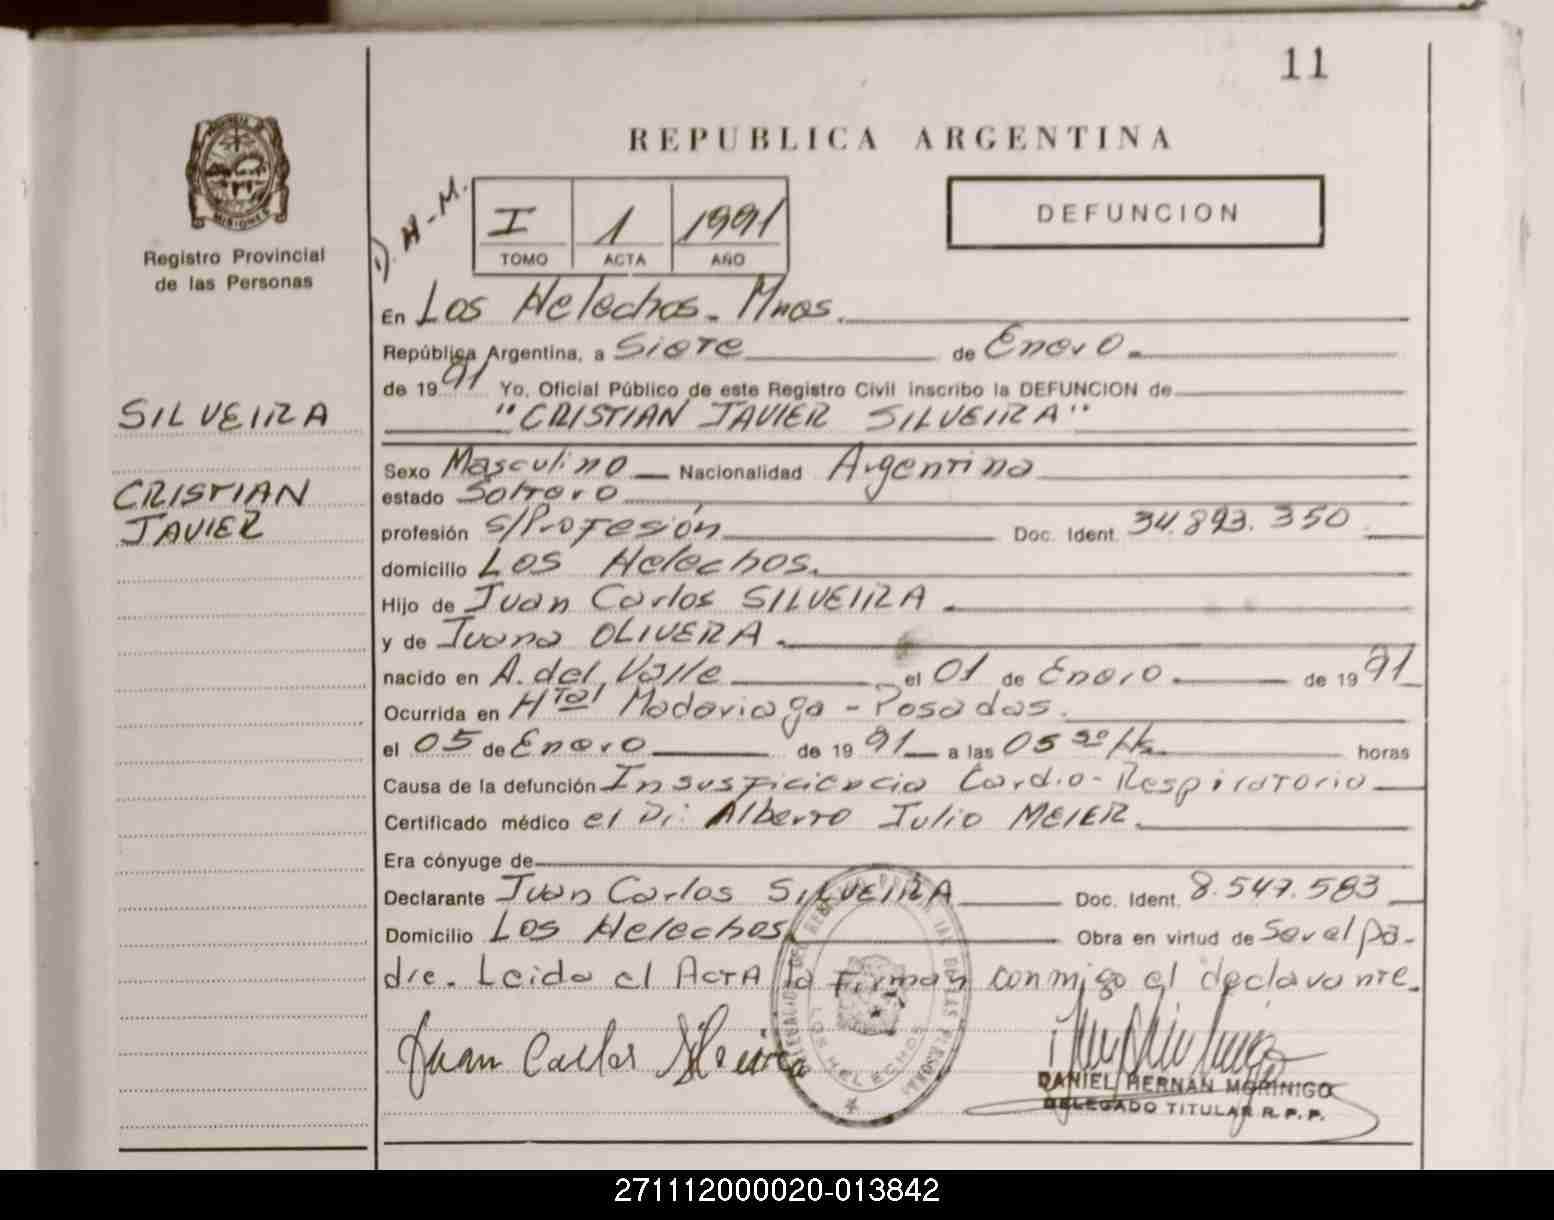 11
REPUBLICA ARGENTINA
PROVINCIA DE
MISIONES
Registro Provincial
de las Personas
D. H-M.
I 1 1991
TOMO ACTA AÑO
DEFUNCION
En Los Helechos. Mnes.
República Argentina, a Siete de Enero
de 1991 Yo, Oficial Público de este Registro Civil inscribo la DEFUNCION de
"CRISTIAN JAVIER SILVEIRA"
SILVEIRA
CRISTIAN
JAVIER
Sexo Masculino Nacionalidad Argentina
estado Soltero
profesión S/Profesión Doc. Ident. 34.893.350
domicilio Los Helechos.
Hijo de Juan Carlos SILVEIRA
y de Juana OLIVERA
nacido en A. del Valle el 01 de Enero de 1991
Ocurrida en Htal Madariaga - Posadas.
el 05 de Enero de 1991 a las 05 30 Hs horas
Causa de la defunción Insusficiencia Cardio-Respiratoria
Certificado médico el Dr: Alberto Julio MEIER
Era cónyuge de
Declarante Juan Carlos SILVEIRA Doc. Ident. 8.547.583
Domicilio Los Helechos Obra en virtud de Ser el pa-
dre. Leida el Acta la firman conmigo el declarante.
Juan Carlos Silveira
LOS HELECHOS
DANIEL HERNAN MORINIGO
DELEGADO TITULAR R.P.P.
271112000020-013842